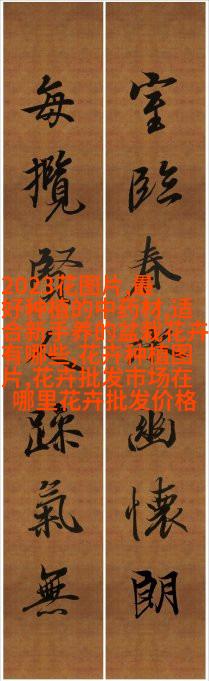 室臨春幽懷朗
每攬賢踈氣無
2023花图片,最
好种植的中药材,适
合新手养的盆栽花卉
有哪些,花卉种植图
片,花卉批发市场在
哪里花卉批发价格